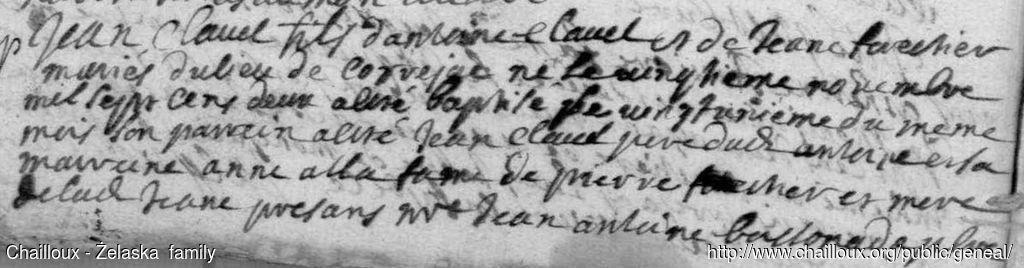 Jean Clauel fils dantoine Clauel et de Jeane forestier
mariés du lieu de né le uingtieme nouembre
mil sept cens deux a été baptisé le uingtunieme du meme
mois son parrain a été Jean Clauel pere dud antoine et sa
marraine anne alla fame de pierre forestier et mere
de lad Jeane presans mre Jean antoine
Chailloux - Želaska family
http://www.chailloux.org/public/geneal/